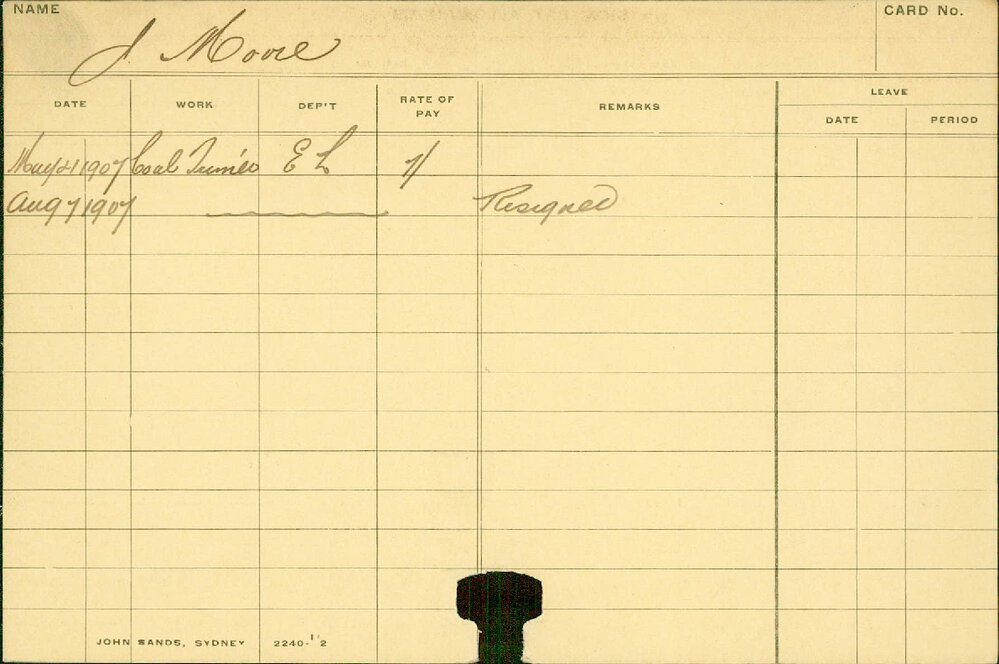 NAME
CARD No.
J Moore
DATE WORK DEP'T RATE OF PAY REMARKS LEAVE
DATE PERIOD
May 21 1907 Coal Trimer E L 7/
Aug 7 1907 Resigned
JOHN SANDS, SYDNEY 2240-1'2